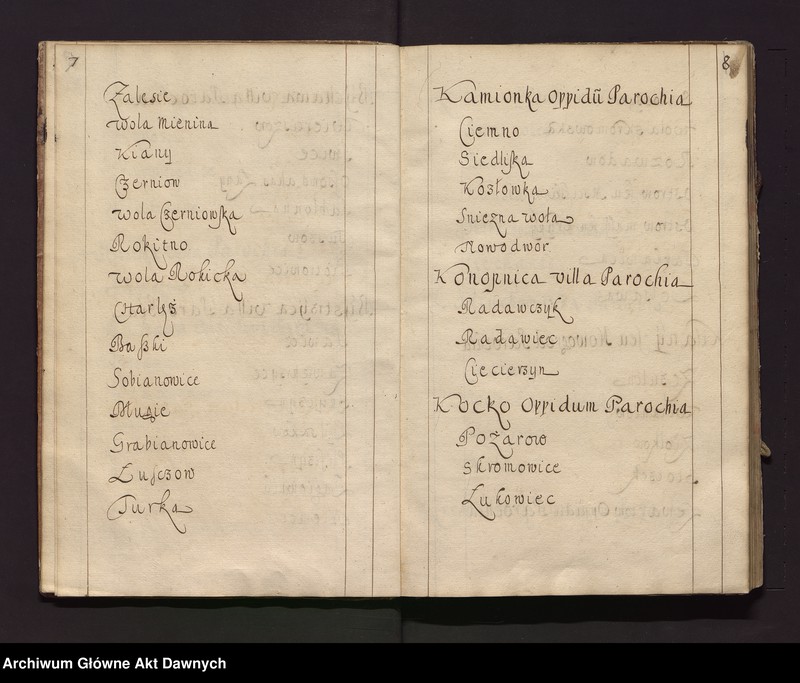 7
Zalesie
Wola Mienina
Kiany
Czerniow
Wola Czerniowska
Rokitno
Wola Rokicka
Charlęż
Baszki
Sobianowice
Grabianowice
Łuszczow
Turka
8
Kamionka Oppidũ Parochia
Ciemno
Siedliska
Kozłowka
Sniezna wola
Nowodwór
Konopnica villa Parochia
Radawczyk
Radawiec
Cieciersyn
Kocko Oppidum Parochia
Pożarow
Skromowice
Łukowiec
Archiwum Główne Akt Dawnych